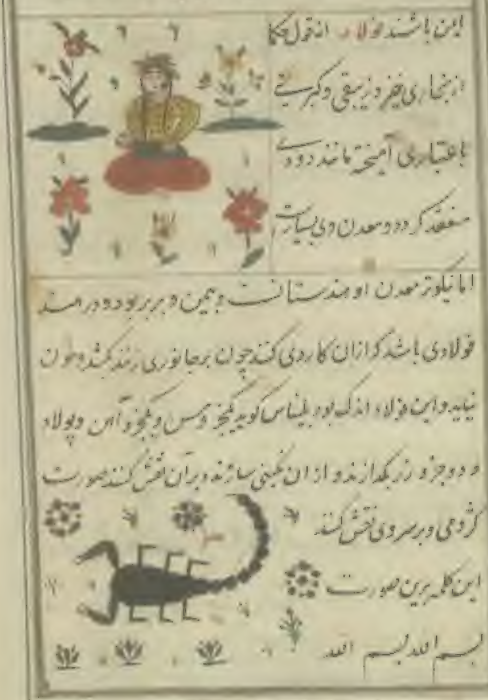 این باشند فولاد از قول حکما
از بخاری و زیبقی و کبریتی
با عتباری آمیخته مانند دودی
منعقد کردد و معدن وی بسیارست
اما نیکوتر معدن او هندستانست و یمن و بربر بود و در هند
فولادی باشد که ازان کاردی کنند چون بر جانوری زنند بکشد و خون
نیاید و این فولاد اندک بود بلیناس کوید یکجزو مس و یکجزو آهن و پولاد
و دو جزو زر بکدازند و ازان نکینی سازند و برآن نقش کنند صورت
کژدمی و بر سر وی نقش کنند
این کلمه برین صورت
بسم الله بسم الله